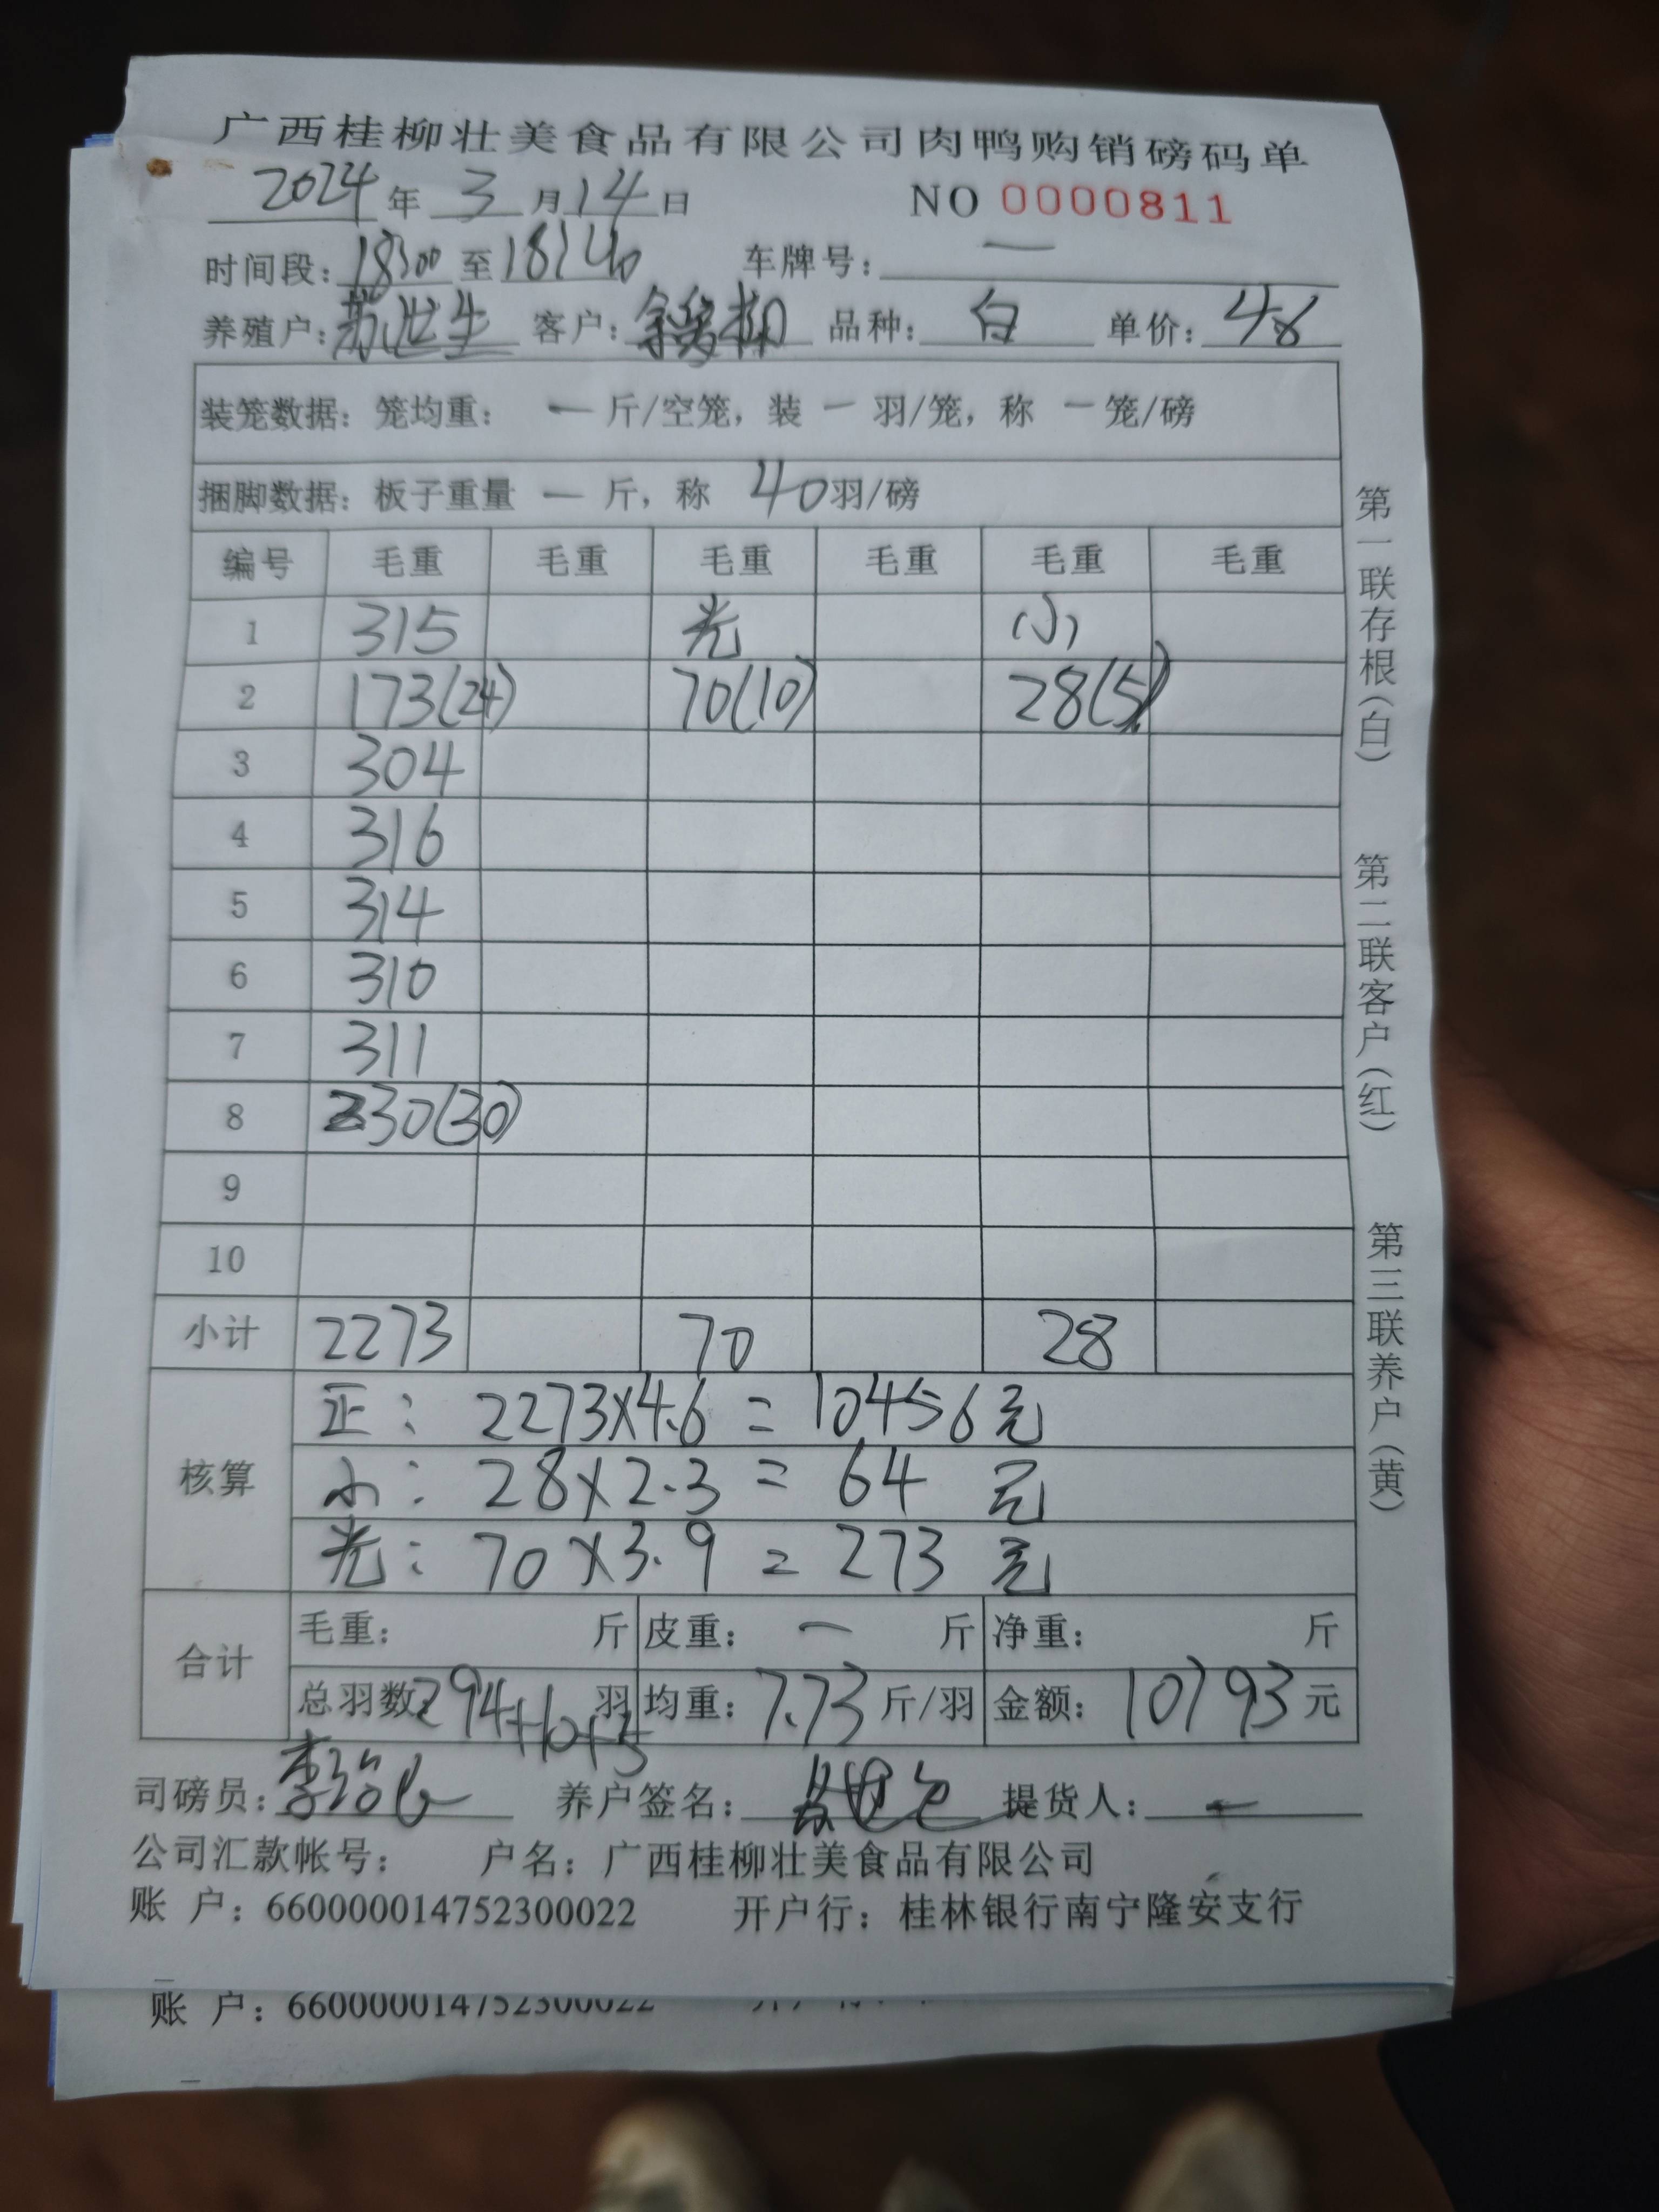 广西桂柳壮美食品有限公司肉鸭购销磅码单
2024 年 3 月 14 日 NO 0000811
时间段: 18:00 至 18:40 车牌号: —
养殖户: 客户: 品种: 白 单价:
装笼数据: 笼均重: — 斤/空笼, 装 — 羽/笼, 称 — 笼/磅
捆脚数据: 板子重量 — 斤, 称 40 羽/磅
编号 毛重 毛重 毛重 毛重 毛重 毛重
1 315 光 小
2 173(24) 70(10) 28(5)
3 304
4 316
5 314
6 310
7 311
8 230(30)
9
10
小计 2273 70 28
核算
正: 2273×4.6 = 10456元
小: 28×2.3 = 64 元
光: 70×3.9 = 273 元
合计
毛重: 斤 皮重: — 斤 净重: 斤
总羽数: 294+10+5 羽 均重: 7.73 斤/羽 金额: 10793 元
司磅员: 养户签名: 提货人: —
公司汇款帐号: 户名: 广西桂柳壮美食品有限公司
账 户: 660000014752300022 开户行: 桂林银行南宁隆安支行
账 户: 660000014752300022
第一联存根(白)
第二联客户(红)
第三联养户(黄)